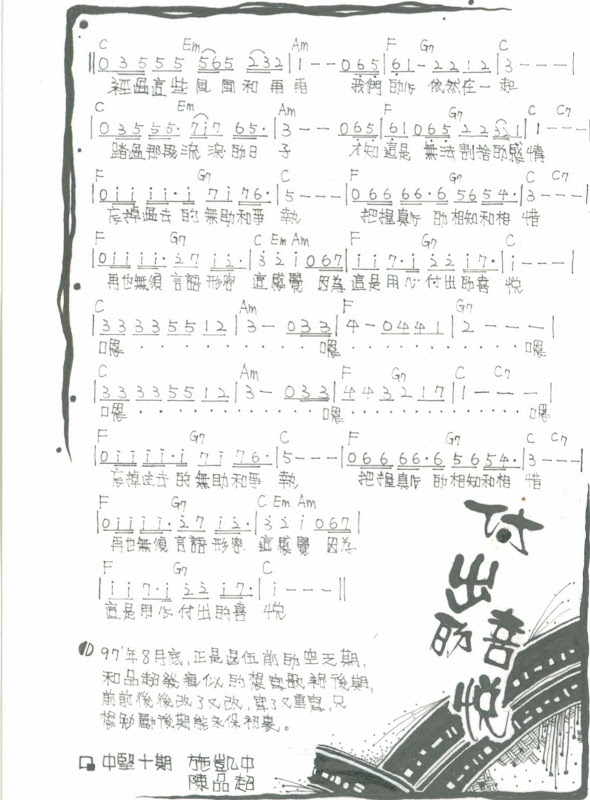 C Em Am F G7 C
‖0 3 5 5 5 5 6 5 2 3 2|1 - - 0 6 5|6 1 - 2 2 1 2|3 - - -|
經過這些風風和雨雨 我們的心依然在一起
C Em Am F G7 C C7
0 3 5 5 5· 7 1 7 6 5·|3 - - 0 6 5|6 1 0 6 5 2 2 3 2 1|1 - - -|
踏過那段流浪的日子 才知這是無法割捨的感情
F G7 C F G7 C C7
|0 i i i i· i 7 i 7 6·|5 - - -|0 6 6 6 6· 6 5 6 5 4·|3 - - -|
忘掉過去的無助和爭執 把握真心的相知和相惜
F G7 C Em Am F G7 C
|0 i i i i· 2 7 i 2·|3 2 i 0 6 7|i i 7· i 2 2 i 7·|i - - -|
再也無須言語形容這感覺 因為這是用心付出的喜悅
C Am F G7
|3 3 3 3 5 5 1 2|3 - 0 3 3|4 - 0 4 4 1|2 - - -|
嗯 · · · · · · · · · · · · · 嗯 · · · · · · · · · · · · 嗯
C Am F G7 C C7
|3 3 3 3 5 5 1 2|3 - - 0 3 3|4 4 3 2 1 7|1 - - -|
嗯 · · · · · · · · · · · · · 嗯 · · · · · · · · · · · · 嗯
F G7 C F G7 C C7
|0 i i i i· i 7 i 7 6·|5 - - -|0 6 6 6 6· 6 5 6 5 4·|3 - - -|
忘掉過去的無助和爭執 把握真心的相知和相惜
F G7 C Em Am
|0 i i i i· 2 7 i 2·|3 2 i 0 6 7|
再也無須言語形容這感覺 因為
F G7 C
|i i 7· i 2 2 i 7·|i - - -‖
這是用心付出的喜悅
付出的喜悅
97'年8月底,正是退伍前的空乏期,
和品超幾番似的想寫歌初後期,
前前後後改了又改,寫了又重寫,只
想勉勵後期能永保初衷。
中堅十期 施凱中
陳品超